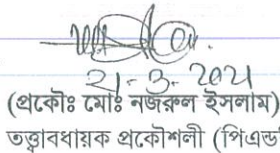 21-3-2021
(প্রকৌঃ মোঃ নজরুল ইসলাম)
তত্ত্বাবধায়ক প্রকৌশলী (পিএন্ড